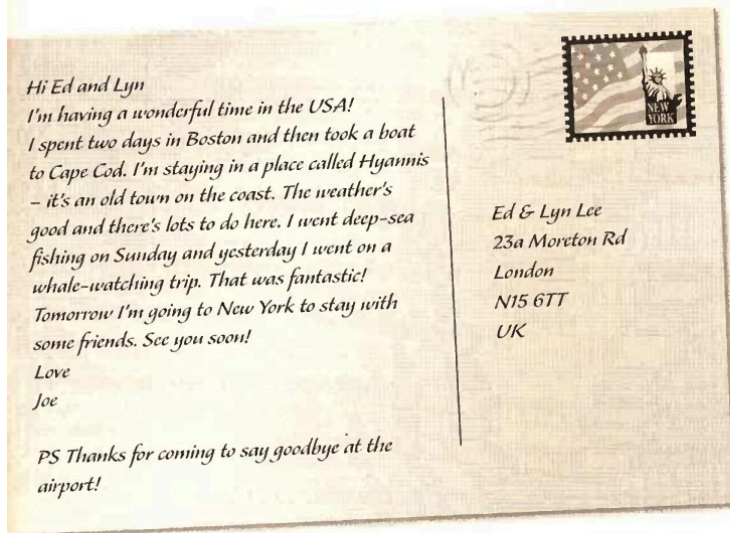 Hi Ed and Lyn
I'm having a wonderful time in the USA!
I spent two days in Boston and then took a boat
to Cape Cod. I'm staying in a place called Hyannis
– it's an old town on the coast. The weather's
good and there's lots to do here. I went deep-sea
fishing on Sunday and yesterday I went on a
whale-watching trip. That was fantastic!
Tomorrow I'm going to New York to stay with
some friends. See you soon!
Love
Joe
PS Thanks for coming to say goodbye at the
airport!
NEW
YORK
Ed & Lyn Lee
23a Moreton Rd
London
N15 6TT
UK